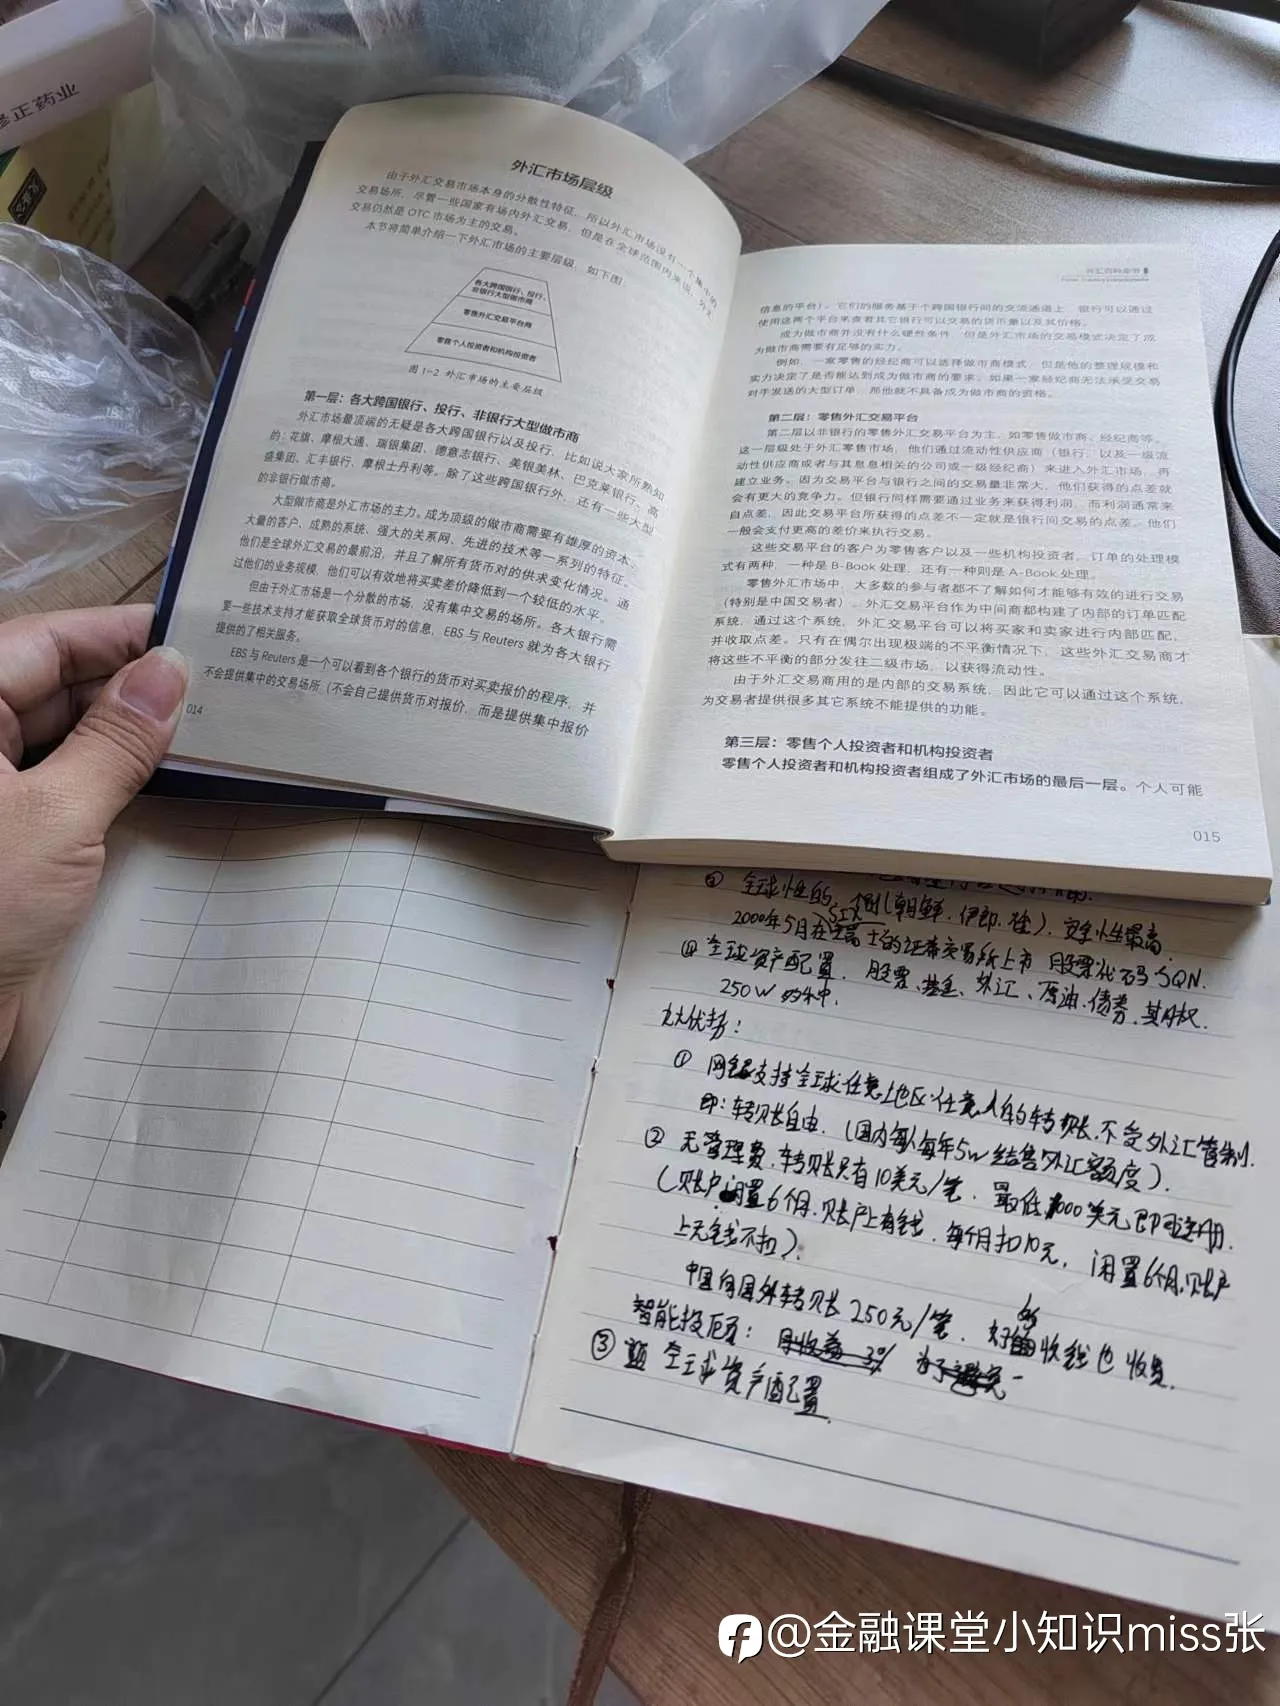 修正药业
外汇市场层级
由于外汇交易市场本身的分散性特征，所以外汇市场没有一个集中的
交易场所，尽管一些国家有场内外汇交易，但是在全球范围内来说，外汇
交易仍然是 OTC 市场为主的交易。
本节将简单介绍一下外汇市场的主要层级，如下图：
各大跨国银行、投行、
非银行大型做市商
零售外汇交易平台商
零售个人投资者和机构投资者
图 1-2 外汇市场的主要层级
第一层：各大跨国银行、投行、非银行大型做市商
外汇市场最顶端的无疑是各大跨国银行以及投行，比如说大家所熟知
的：花旗、摩根大通、瑞银集团、德意志银行、美银美林、巴克莱银行、高
盛集团、汇丰银行、摩根士丹利等。除了这些跨国银行外，还有一些大型
的非银行做市商。
大型做市商是外汇市场的主力。成为顶级的做市商需要有雄厚的资本、
大量的客户、成熟的系统、强大的关系网、先进的技术等一系列的特征。
他们是全球外汇交易的最前沿，并且了解所有货币对的供求变化情况。通
过他们的业务规模，他们可以有效地将买卖差价降低到一个较低的水平。
但由于外汇市场是一个分散的市场，没有集中交易的场所。各大银行需
要一些技术支持才能获取全球货币对的信息，EBS 与 Reuters 就为各大银行
提供的了相关服务。
EBS 与 Reuters 是一个可以看到各个银行的货币对买卖报价的程序，并
不会提供集中的交易场所（不会自己提供货币对报价，而是提供集中报价
014
信息的平台）。它们的服务基于个跨国银行间的交流通道上，银行可以通过
使用这两个平台来查看其它银行可以交易的货币量以及其价格。
成为做市商并没有什么硬性条件，但是外汇市场的交易模式决定了成
为做市商需要有足够的实力。
例如，一家零售的经纪商可以选择做市商模式，但是他的整理规模和
实力决定了是否能达到成为做市商的要求。如果一家经纪商无法承受交易
对手发送的大型订单，那他就不具备成为做市商的资格。
第二层：零售外汇交易平台
第二层以非银行的零售外汇交易平台为主，如零售做市商、经纪商等。
这一层级处于外汇零售市场，他们通过流动性供应商（银行，以及一级流
动性供应商或者与其息息相关的公司或一级经纪商）来进入外汇市场，再
建立业务。因为交易平台与银行之间的交易量非常大，他们获得的点差就
会有更大的竞争力。但银行同样需要通过业务来获得利润，而利润通常来
自点差，因此交易平台所获得的点差不一定就是银行间交易的点差。他们
一般会支付更高的差价来执行交易。
这些交易平台的客户为零售客户以及一些机构投资者，订单的处理模
式有两种，一种是 B-Book 处理，还有一种则是 A-Book 处理。
零售外汇市场中，大多数的参与者都不了解如何才能够有效的进行交易
（特别是中国交易者）。外汇交易平台作为中间商都构建了内部的订单匹配
系统，通过这个系统，外汇交易平台可以将买家和卖家进行内部匹配，
并收取点差。只有在偶尔出现极端的不平衡情况下，这些外汇交易商才
将这些不平衡的部分发往二级市场，以获得流动性。
由于外汇交易商用的是内部的交易系统，因此它可以通过这个系统，
为交易者提供很多其它系统不能提供的功能。
第三层：零售个人投资者和机构投资者
零售个人投资者和机构投资者组成了外汇市场的最后一层。个人可能
015
全球性的 (朝鲜、伊朗、除)．安全性最高
2000年5月在瑞士的证券交易所上市 股票代码SQN.
④ 全球资产配置．股票、基金、外汇、原油、债券、期权.
250W
九大优势：
① 网银支持全球任意地区任意人的转账，不受外汇管制.
即：转账自由．(国内每人每年5w结售外汇额度).
② 无管理费，转账只有10美元/笔．最低1000美元即可注册.
(账户闲置6个月，账户上有钱，每个月扣10元，闲置6个月，账户
上无钱不扣).
中国向国外转账250元/笔． 收钱也收费.
智能投顾：
③ 全球资产配置.
@金融课堂小知识miss张